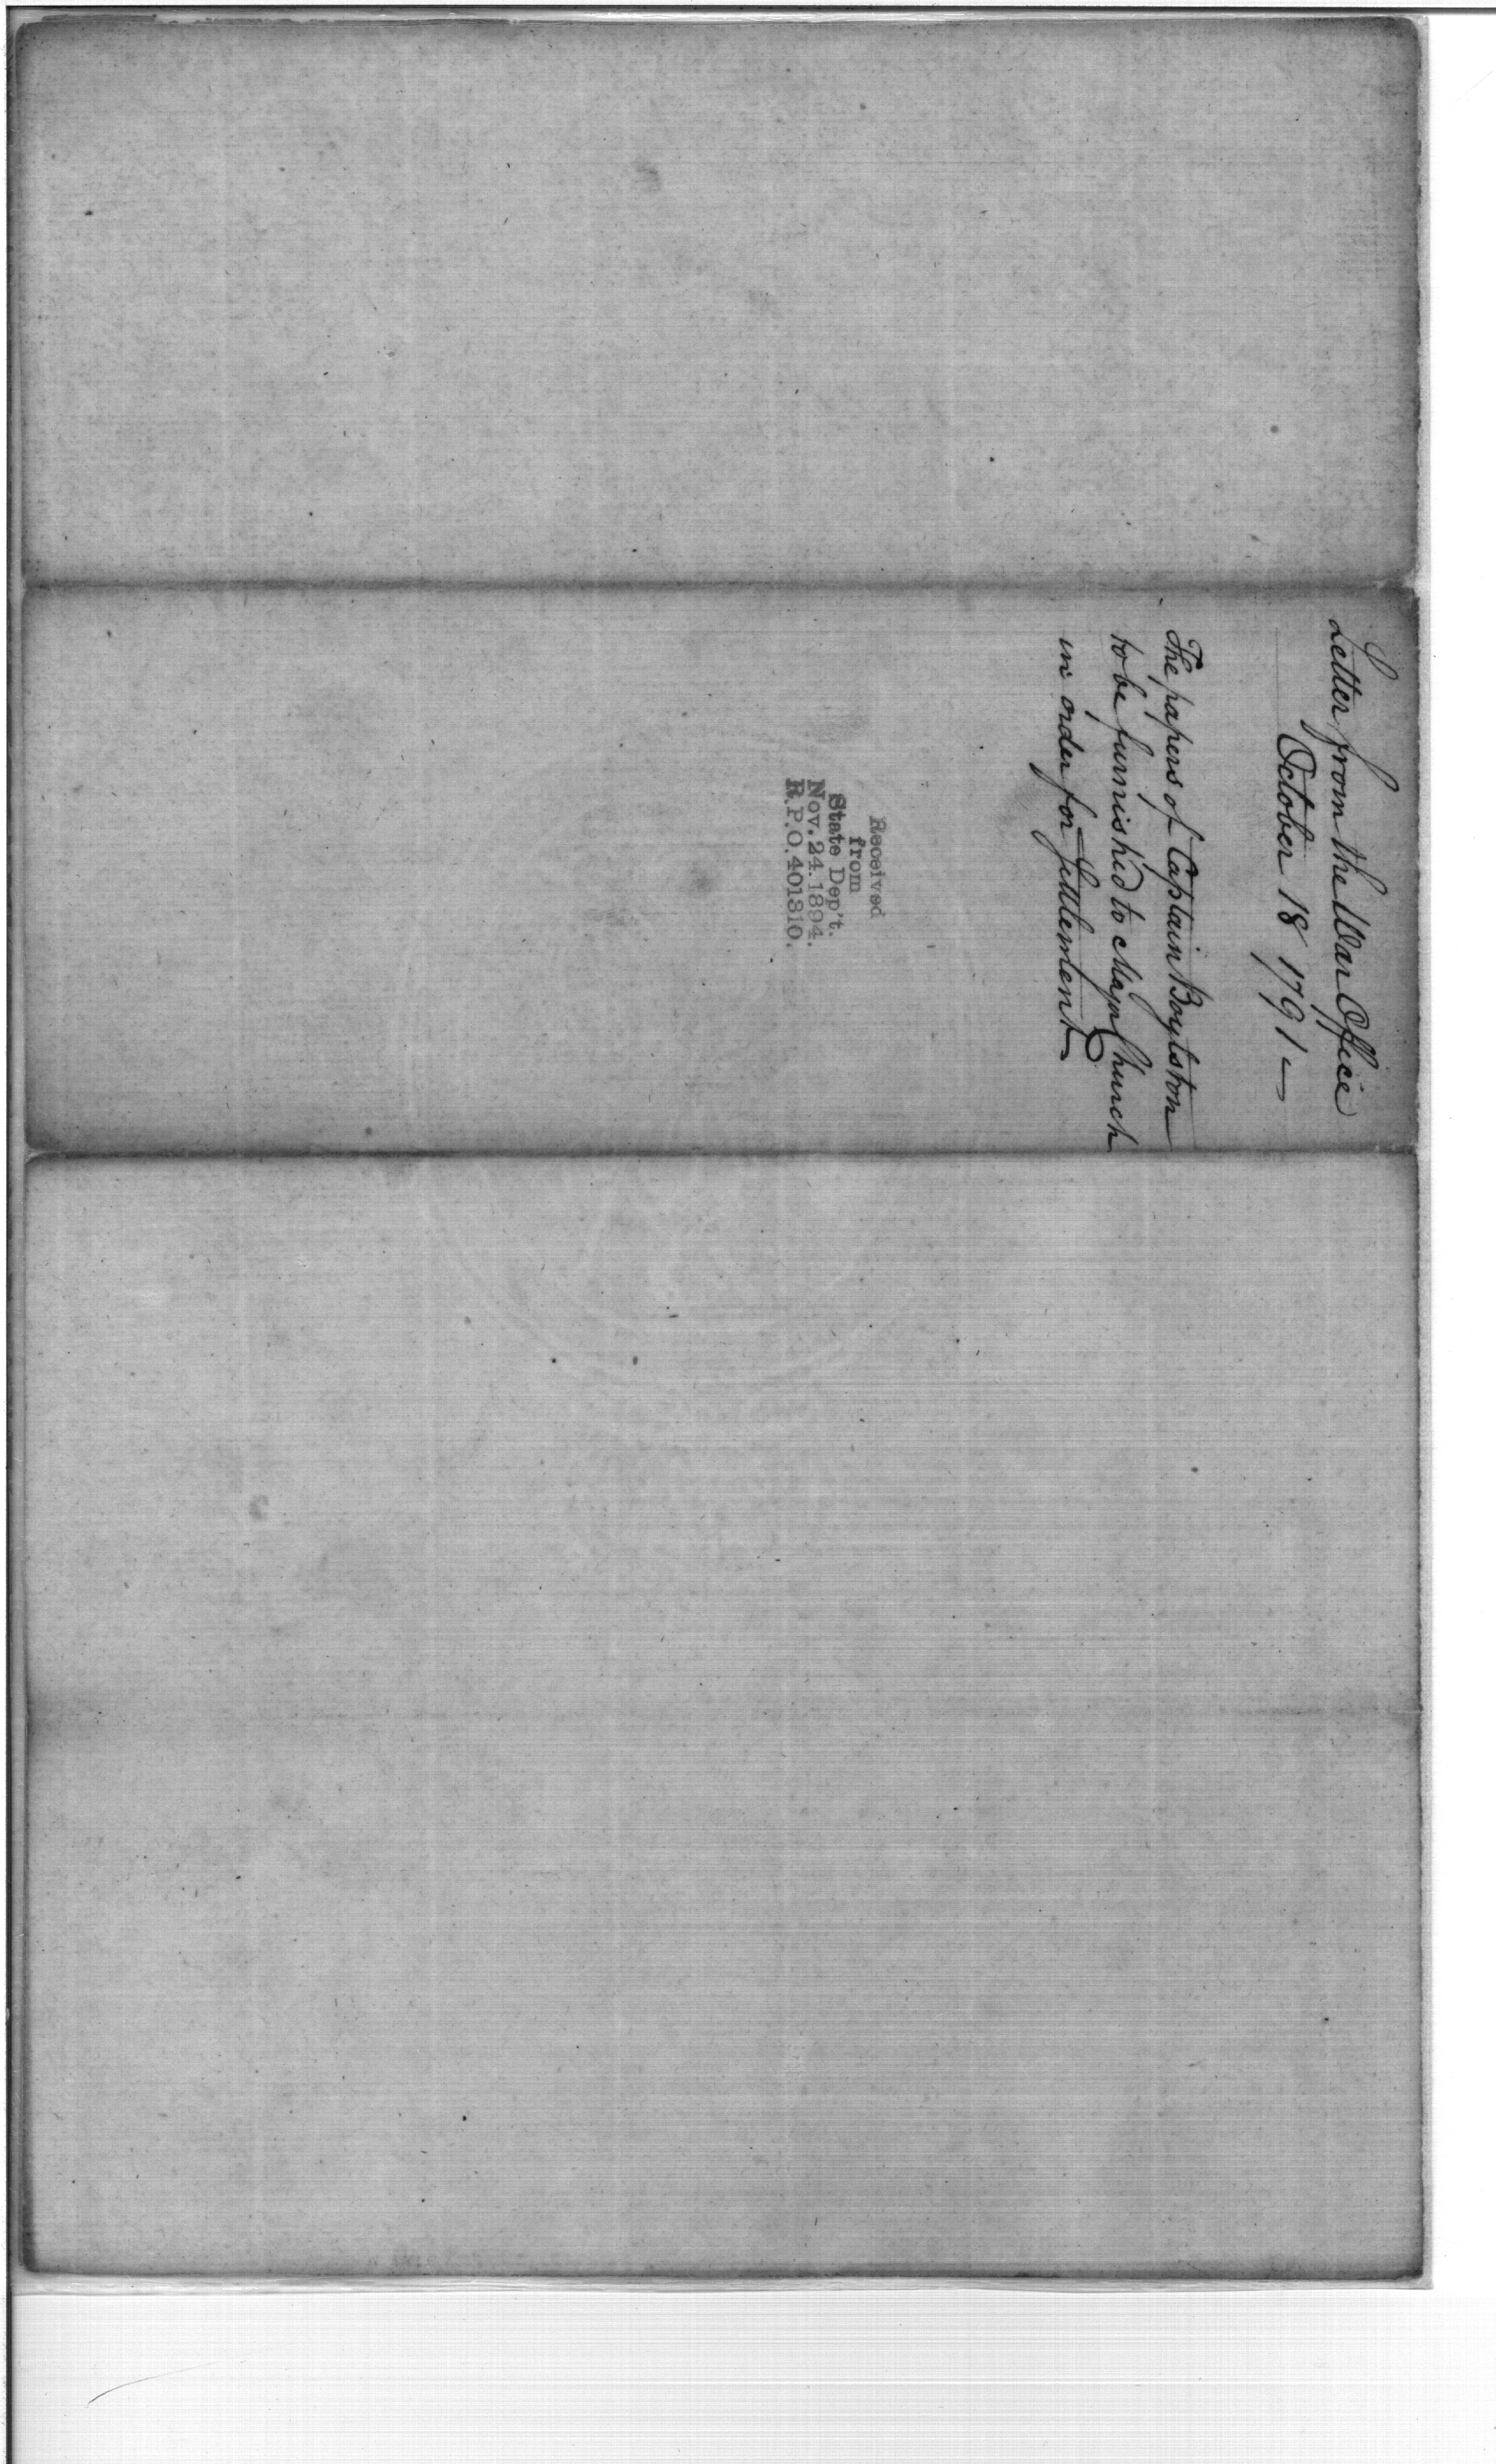 Letter from the War Office
October 18 1791 —
The papers of Captain Boylston
to be furnished to Major Church
in order for Settlement
Received
from
State Dep't.
Nov. 24. 1894.
R.P.O. 401310.